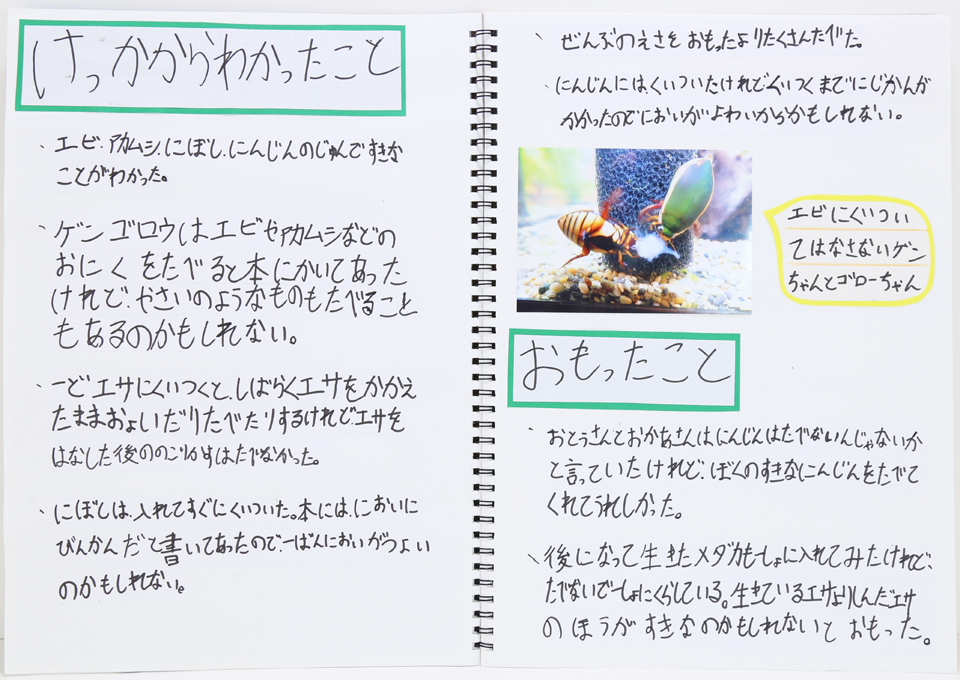 けっかからわかったこと
、エビ、アカムシ、にぼし、にんじんのじゅんですきな
ことがわかった。
、ゲンゴロウはエビやアカムシなどの
おにくをたべると本にかいてあった
けれど、やさいのようなものもたべること
もあるのかもしれない。
、一どエサにくいつくと、しばらくエサをかかえ
たままおよいだりたべたりするけれどエサを
はなした後ののこりかすはたべなかった。
、にぼしは、入れてすぐにくいついた。本には、においに
びんかんだと書いてあったので、一ばんにおいがつよい
のかもしれない。
、ぜんぶのえさをおもったよりたくさんたべた。
、にんじんにはくいついたけれどくいつくまでにじかんが
かかったのでにおいがよわいからかもしれない。
エビにくいつい
てはなさないゲン
ちゃんとゴローちゃん
おもったこと
、おとうさんとおかあさんはにんじんはたべないんじゃないか
と言っていたけれど、ぼくのすきなにんじんをたべて
くれてうれしかった。
、後になって生きたメダカもーしょに入れてみたけれど、
たべないでーしょにくらしている。生きているエサよりしんだエサ
のほうがすきなのかもしれないとおもった。